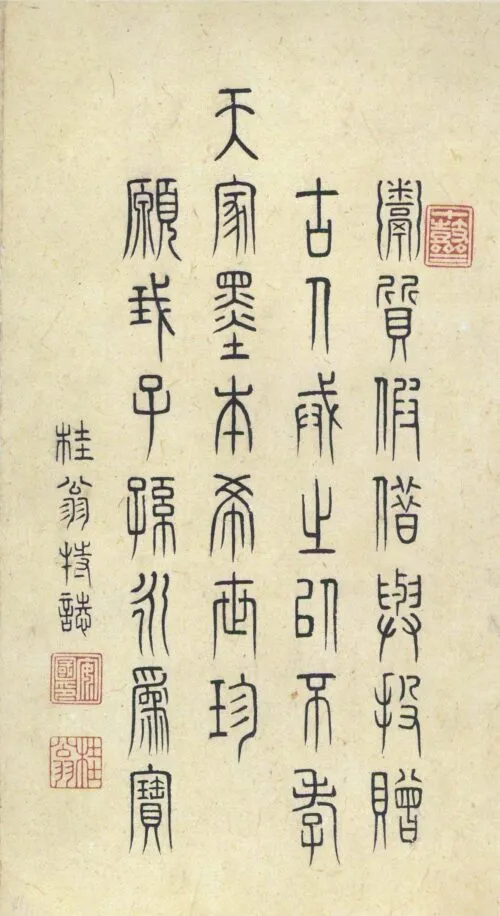 鬻質假借與投贈
古人戒之以不孝
天家墨本希世珍
願我子孫永爲寶
桂翁特誌
桂翁